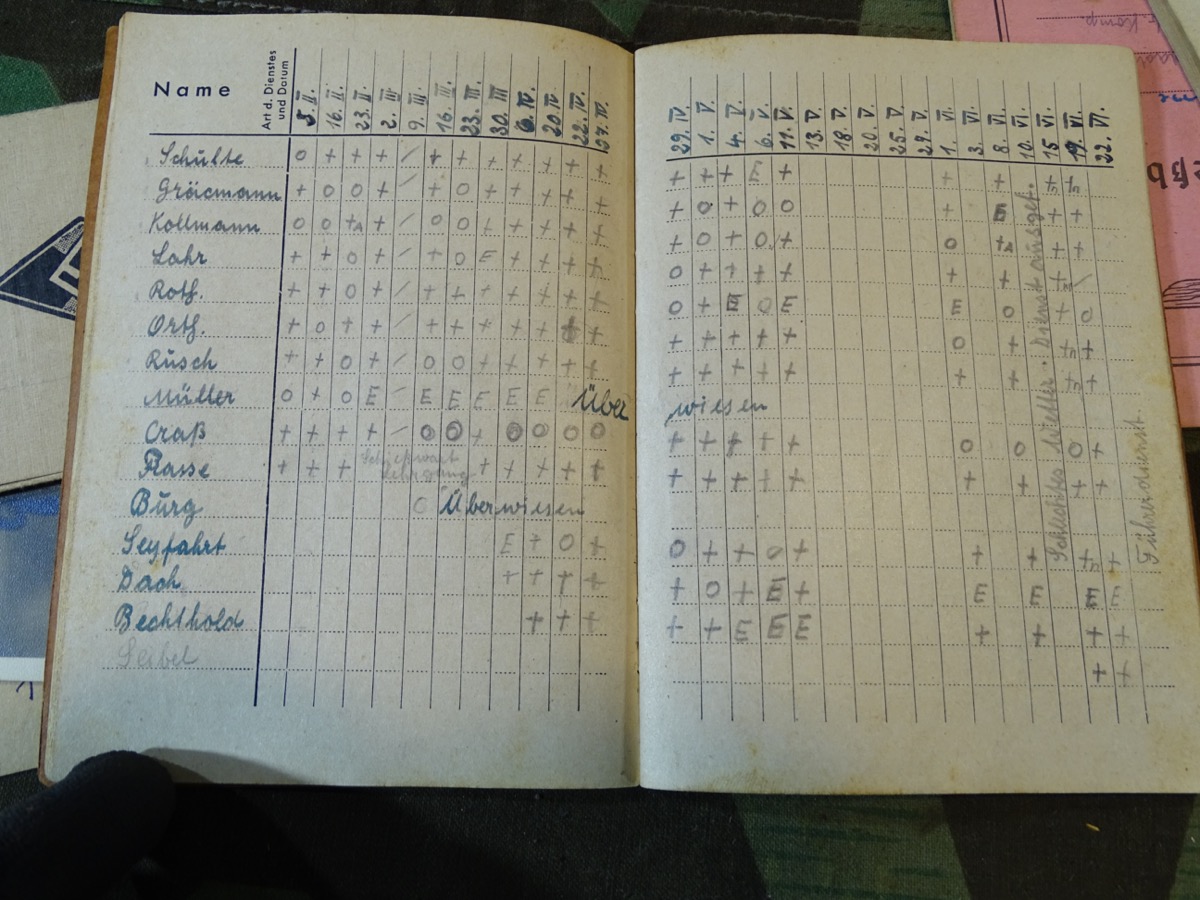 Name Art d. Dienstes und Datum 5. II. 16. II. 23. II. 2. III 9. III. 16. III. 23. III. 30. III 6. IV. 20. IV 22. IV. 27. IV.
Schulte o + + + / + + + + + + +
Gräcmann + o o + / + o + + + + +
Kollmann o o +A + / o o + + + + +
Lohr + + o + / + o E + + + +
Roth. + + o + / + + + + + + +
Orth. + o + + / + + + + + + +
Rusch + + o + / o o + + + + +
Müller o + o E / E E E E E Über
Craß + + + + / o o + o o o o
Flasse + + + Schießwart Lehrgang + + + + +
Burg o Überwiesen
Seyfahrt E + o +
Dach + + + +
Bechthold + + +
Seibel
29. IV. 1. V. 4. V. 6. V. 11. V. 13. V. 18. V. 20. V. 25. V. 27. V. 1. VI. 3. VI. 8. VI. 10. VI. 15. VI. 19. VI. 22. VI.
+ + + E + + + +n +n
+ o + o o + E + +
+ o + o + o +A + +
o + + + + + + + /
o + E o E E o + o
+ + + + + o + +n +
+ + + + + + + +n +
wiesen
+ + + + + o o o +
+ + + + + + + + +
o + + o + + + +n +
+ o + E + E E E E
+ + E E E + + + +
+ +
Schlechtes Wetter. Dienst ausgef.
Führerdienst
Komp.